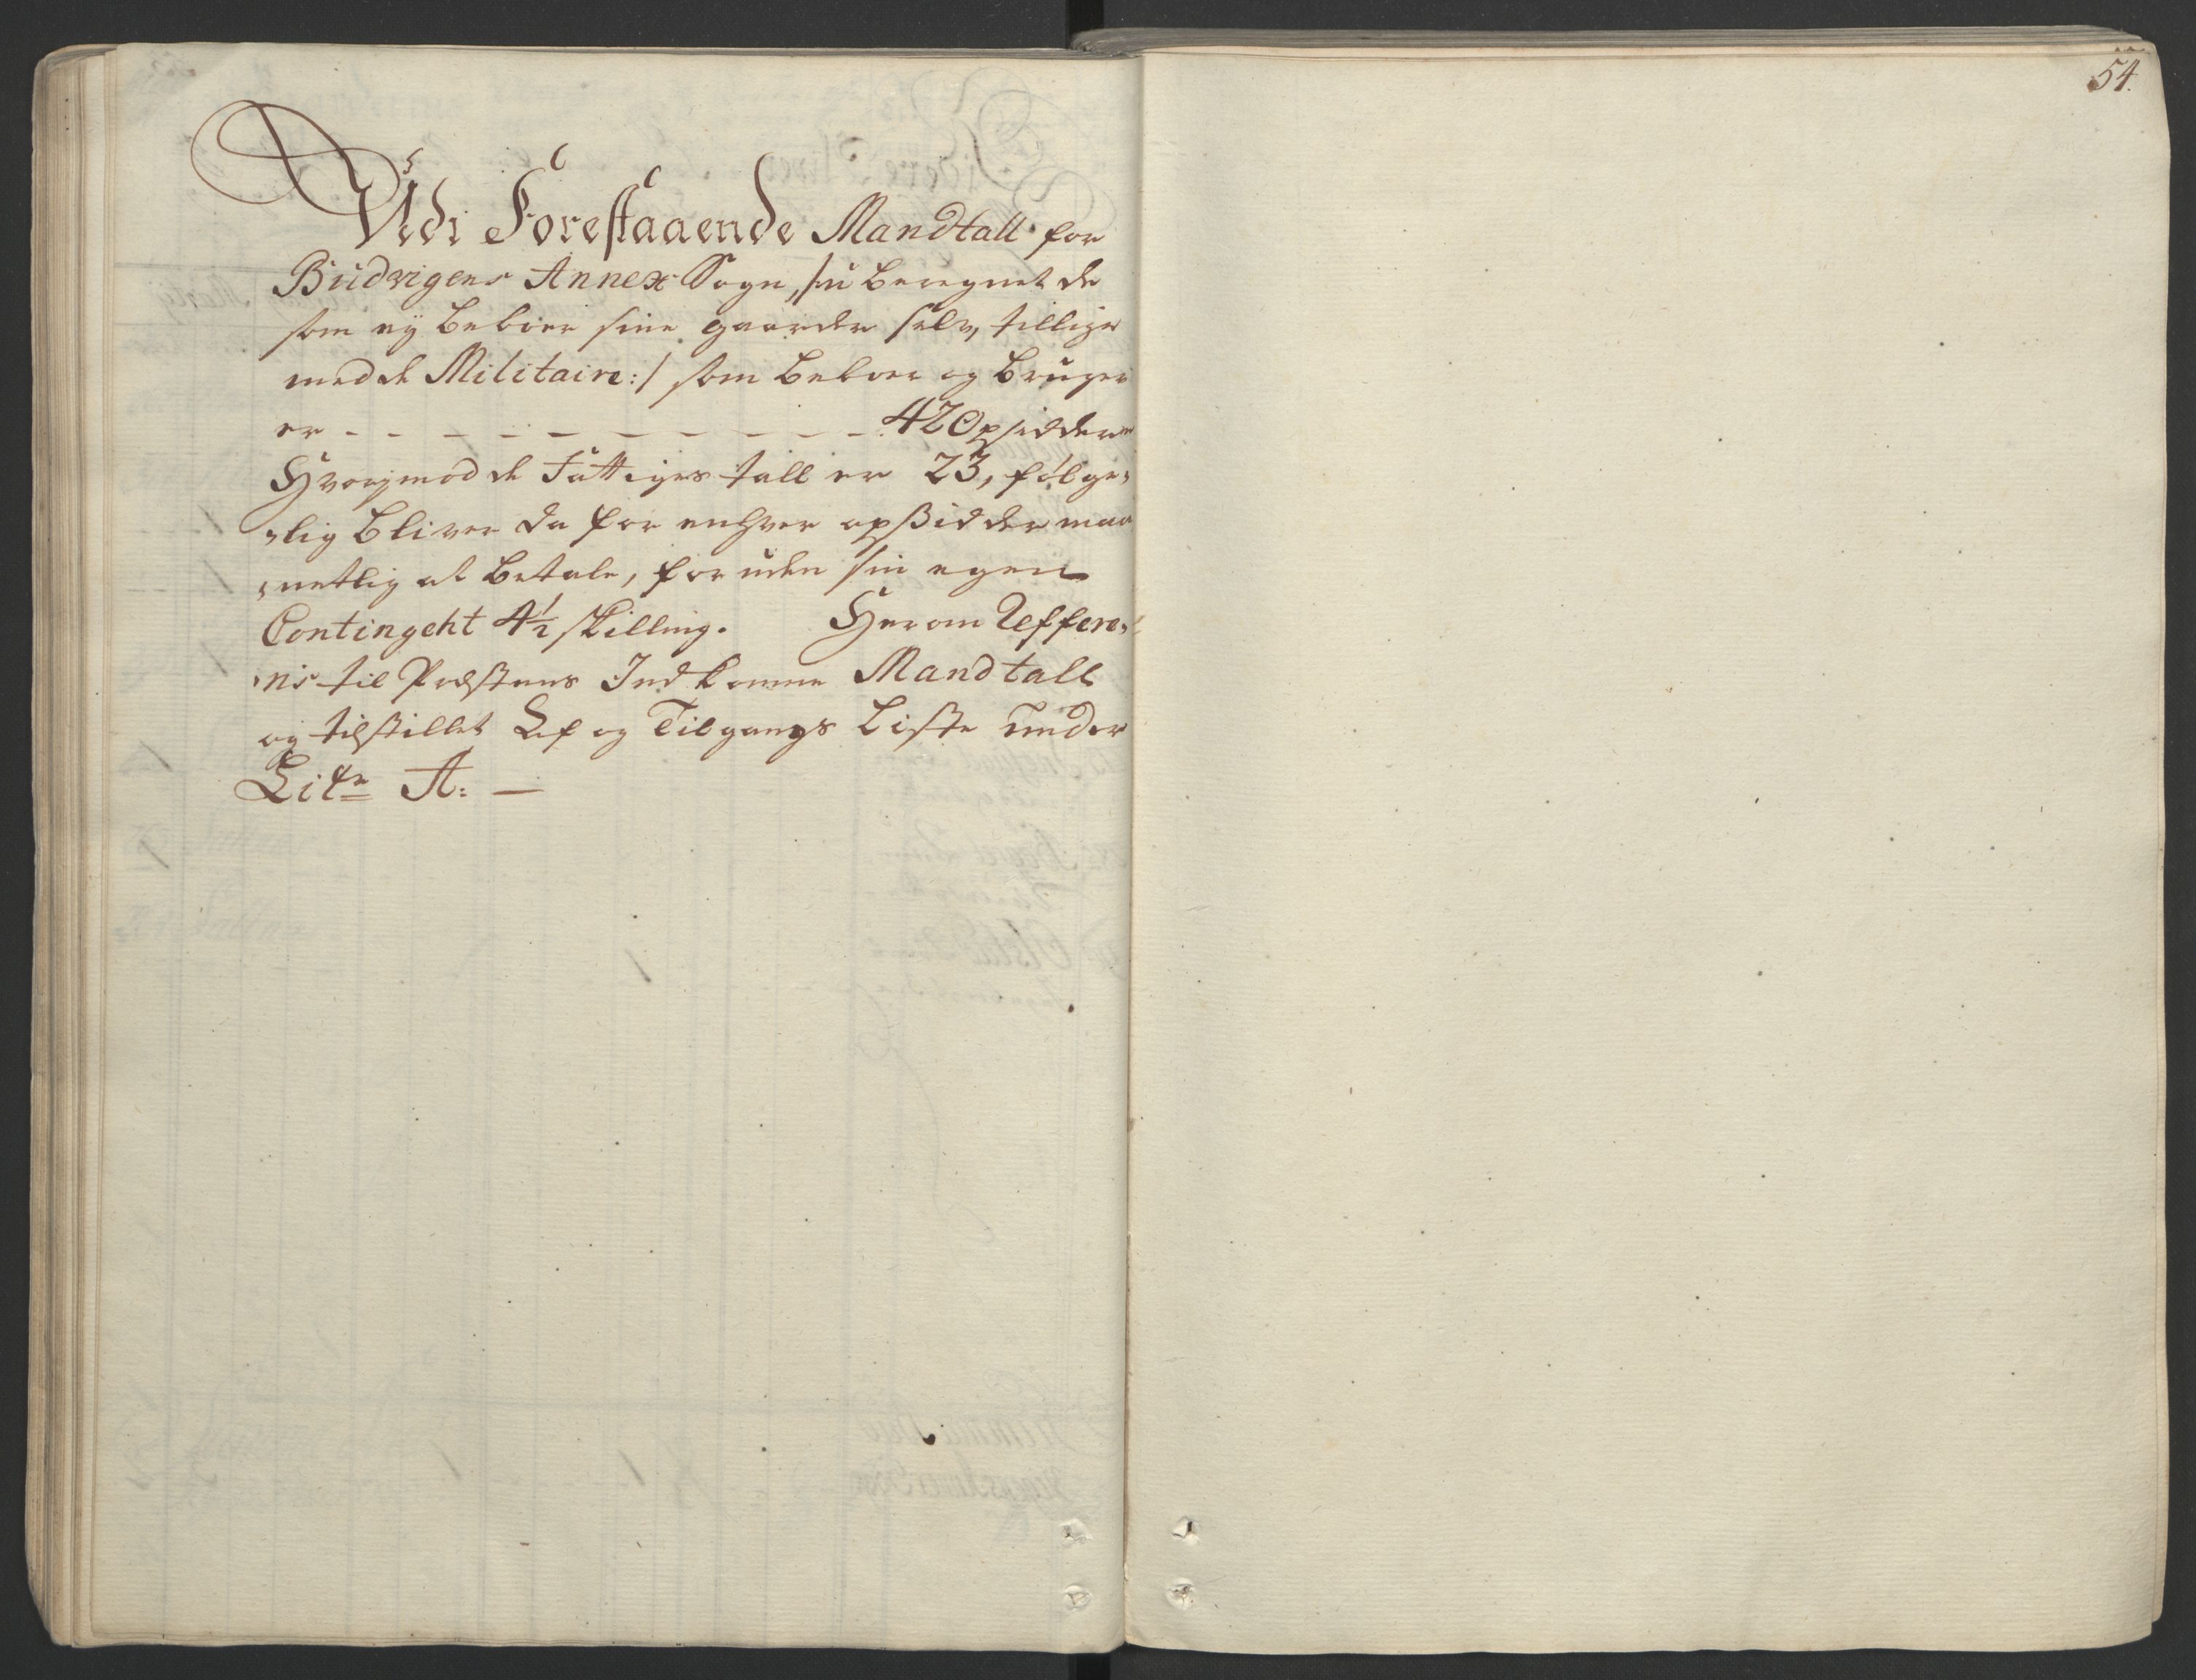 54.
Udi Forestaaende Mandtall for
Budvigens Annex Sogn, /:u beregnet de
som ey beboer sine gaarder selv, tillige
med de Militaire:/ som beboer og bruger
er - - - - - - - - - - 42 Opsiddere
Hvorimod de Fattiges tall er 23, følge,
,lig bliver da for enhver opsidder maa
,netlig at betale, foruden sin egen
Contingent 4½ skilling. Herom Reffere,
,ris til Præstens Indkomne Mandtall
og tilstillet Af og Tilgangs Liste under
Litr A: —